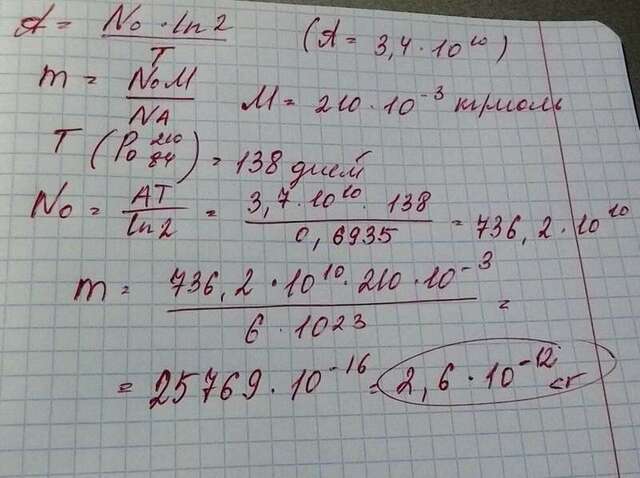 A = N₀ · ln 2 / T (A = 3,4 · 10¹⁰)
m = N₀M / NA M = 210 · 10⁻³ кг/моль
T (Po ²¹⁰ ₈₄) = 138 дней
N₀ = AT / ln 2 = 3,7 · 10¹⁰ · 138 / 0,6935 = 736,2 · 10¹⁰
m = 736,2 · 10¹⁰ · 210 · 10⁻³ / 6 · 1023 =
= 25769 · 10⁻¹⁶ = 2,6 · 10⁻¹² кг